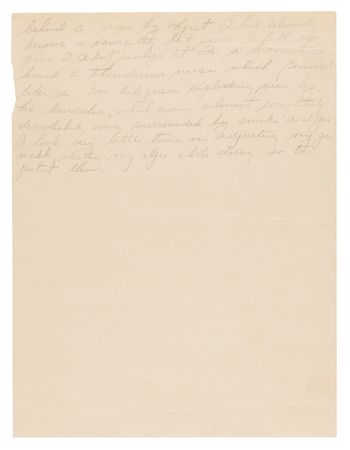 behind a near by object I had already
become a casualty but since I felt no
pain I didn't realize it In a moment I
heard a thunderous noise which sounded
like a 100 kilogram exploding near by
the barracks, which were almost completely
demolished, were surrounded by smoke and gas
I took very little time in adjusting my gas
mask, shutting my eyes while doing so to
protect them,